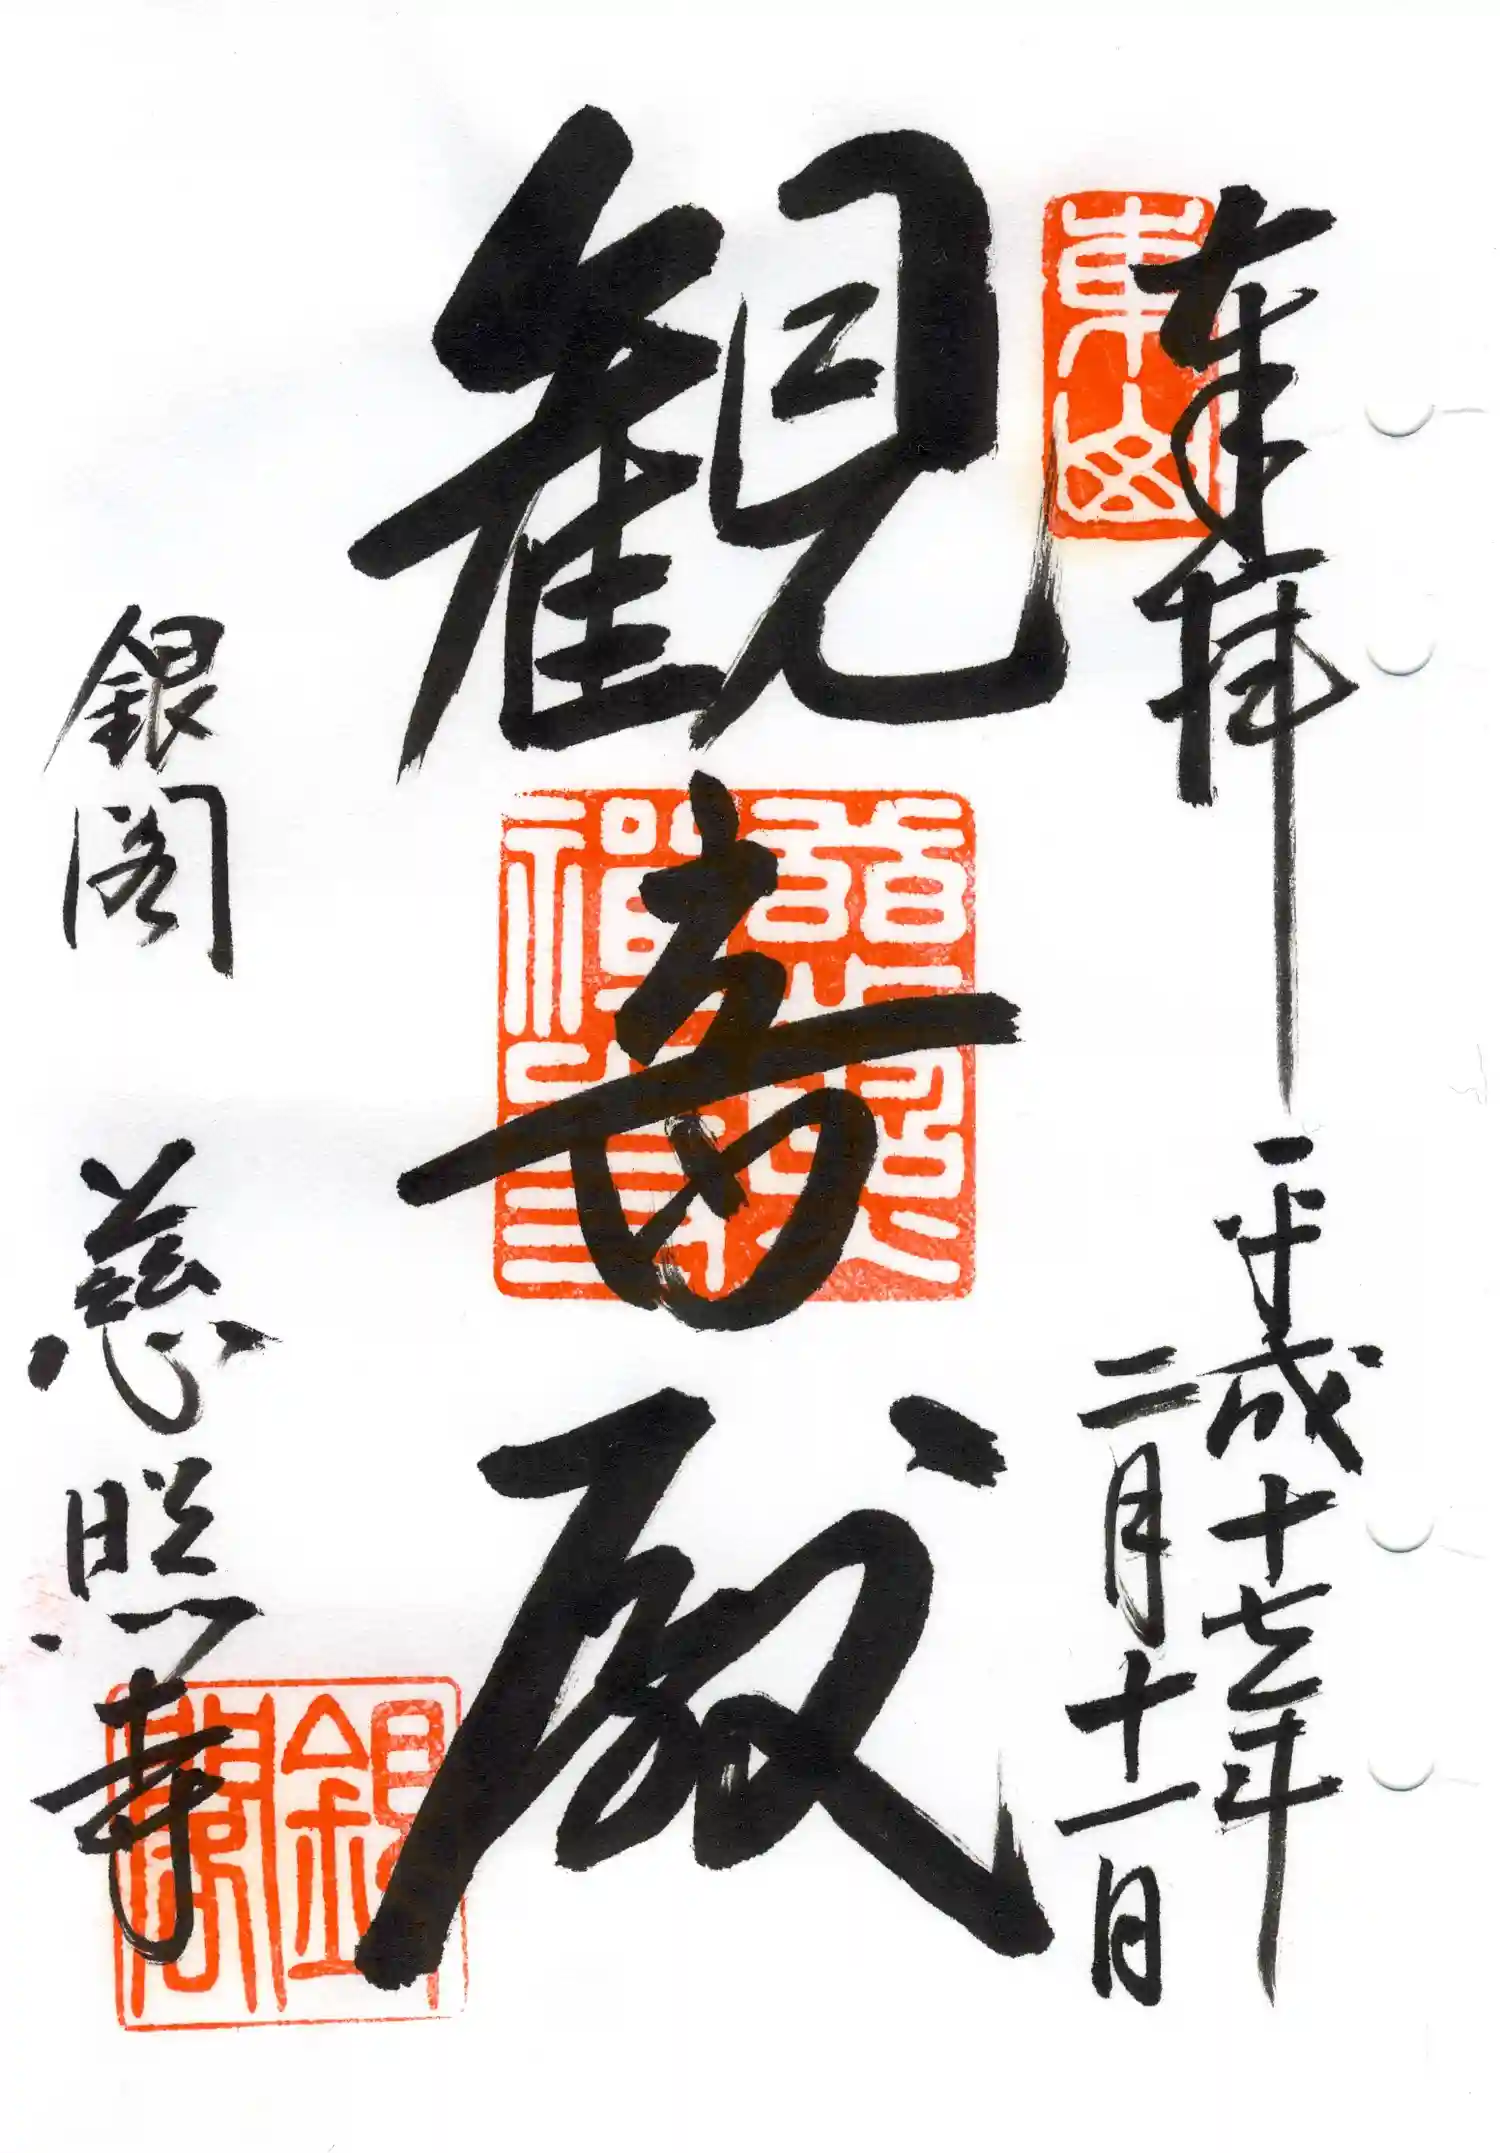 奉拝
平成十七年
二月十一日
東山
観音殿
慈照
禅寺
銀閣　慈照寺
銀閣